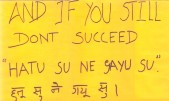 AND IF YOU STILL
DONT SUCCEED
"HATU SU NE GAYU SU."
हतु सु ने गयू सु।